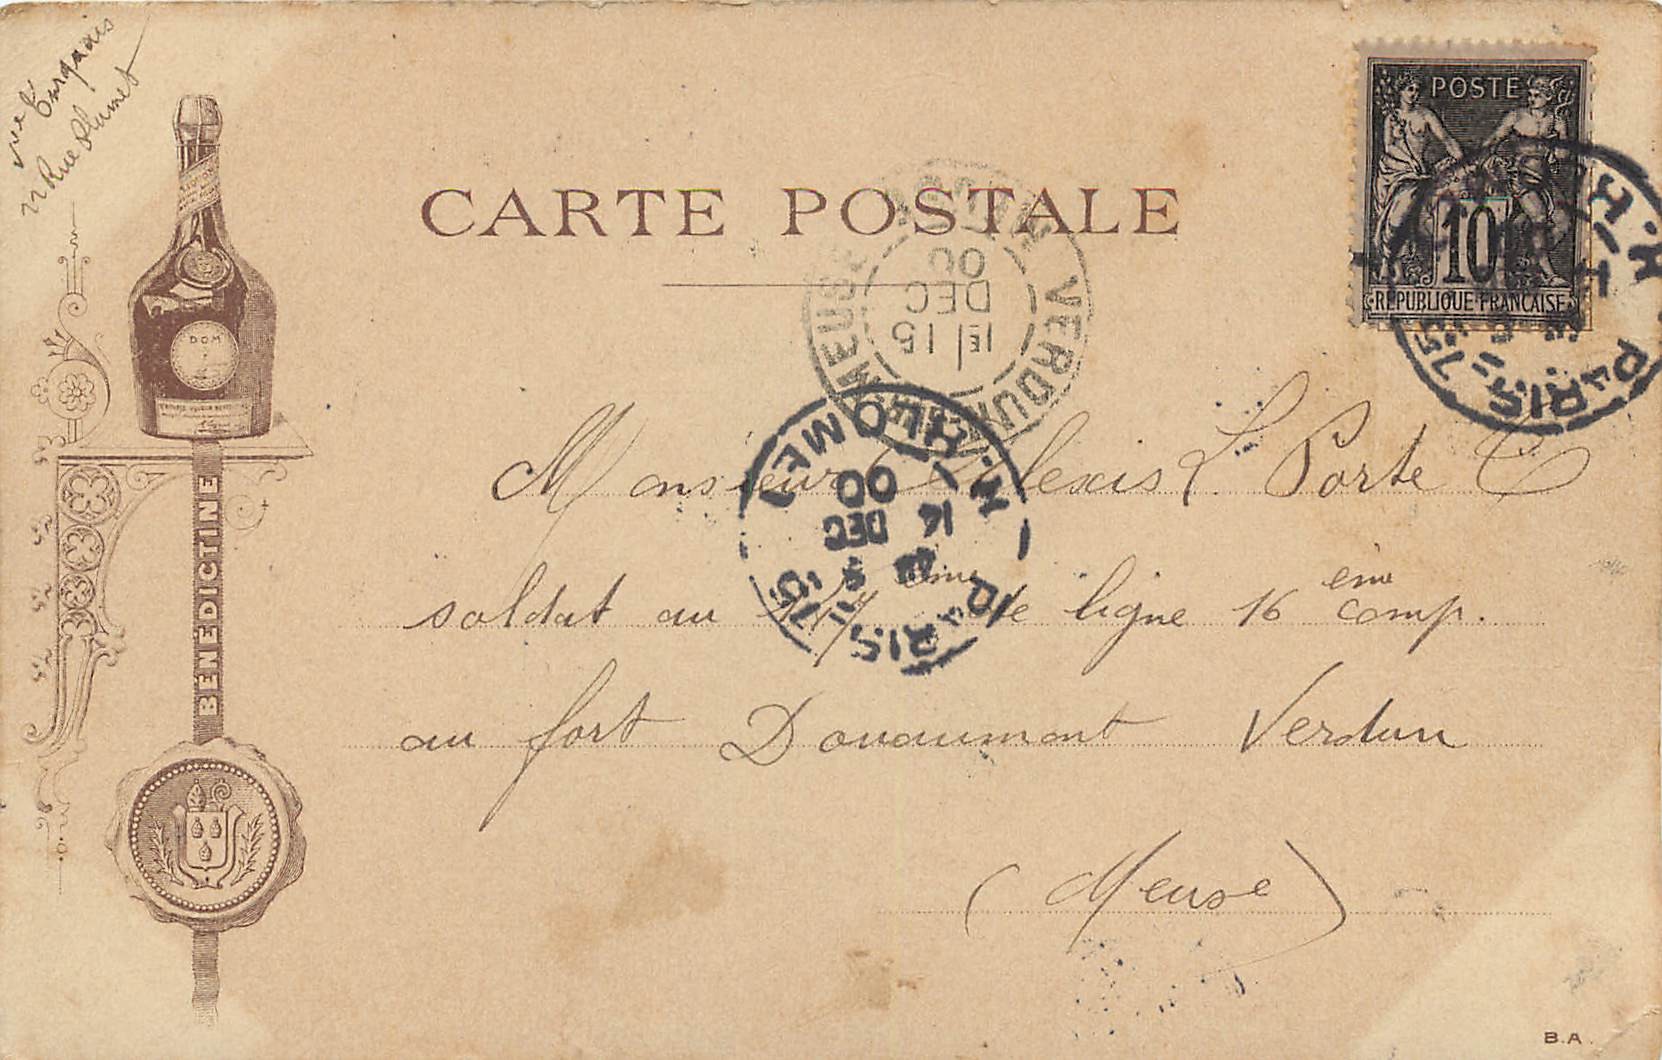 Rue Plumet
CARTE POSTALE
POSTE
10
REPUBLIQUE FRANÇAISE
PARIS
VERDUN-S-MEUSE
1E/15
DEC
00
PARIS
14
DEC
00
DOM
BENEDICTINE
Monsieur Alexis L. Porte C
soldat au ème de ligne 16 ème comp.
au fort Douaumont Verdun
(Meuse)
B.A.